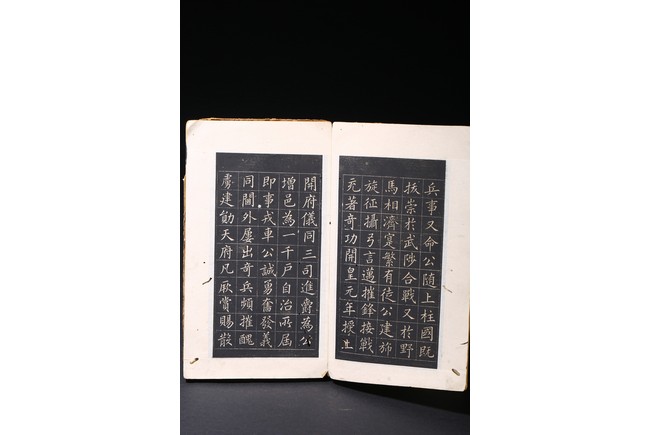 兵事又命公随上柱國既
拔崇於武陟合戰又於野
馬相濟寔繁有徒公建旆
旋征攝弓言邁摧鋒接戰
克著奇功開皇元年授上
開府儀同三司進爵為公
增邑為一千戶自治所届
即事戎車公誠勇奮發義
同閫外屢出奇兵頻摧醜
虜建勛天府凡厥賞賜散